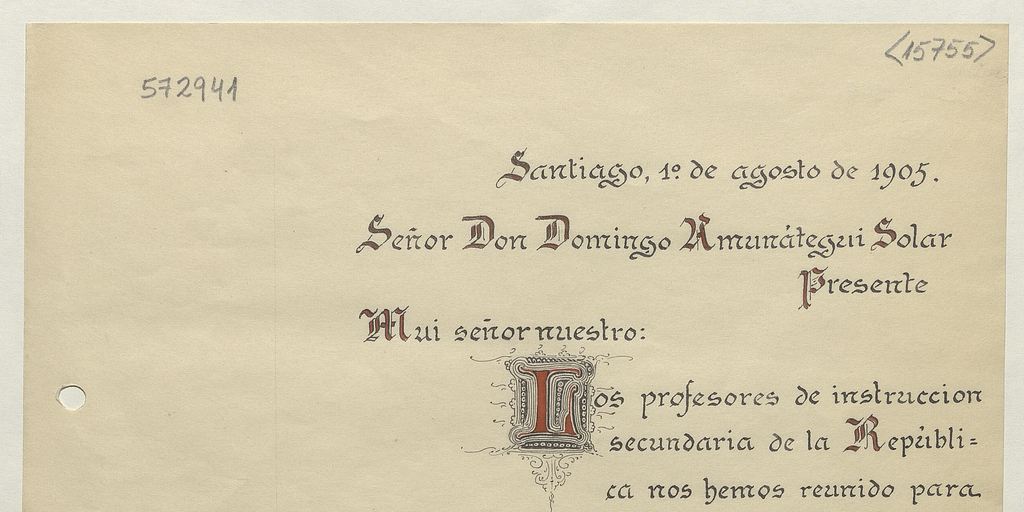 <15755>
572941
Santiago, 1º de agosto de 1905.
Señor Don Domingo Amunátegui Solar
Presente
Mui señor nuestro:
Los profesores de instruccion
secundaria de la Repúbli=
ca nos hemos reunido para